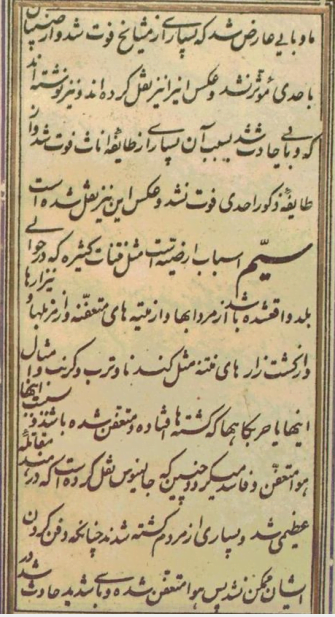 ما وبایی عارض شد که بسیاری از مشایخ فوت شد و از صبیان
باحدی مؤثر نشد و عکس انیرا نیز نقل کرده‌اند و نیز نوشته‌اند
که وبایی حادث شد بسبب آن بسیاری از طایفهٔ اناث فوت شد و از
طایفهٔ ذکور احدی فوت نشد و عکس این نیز نقل شده است
سیّم اسباب ارضیّه است مثل فتنات کثیره که در حوالی
بلد واقع شده باشد از مردابها و از میته های متعفنه و از مزبلها و نیزارها
و از کشت زار های مثل کندنا و ترب و کرنب و امثال
اینها یا حربگاهها که کشته ها افتاده و متعفن شده باشند و از اینها
هوا متعفن و فاسد میگردد چنین که جالینوس نقل کرده است که در مقاتله
عظیمی شد و بسیاری از مردم کشته شدند چنانکه دفن کردن
ایشان ممکن نشد پس هوا متعفن شده وبای شدید حادث شد